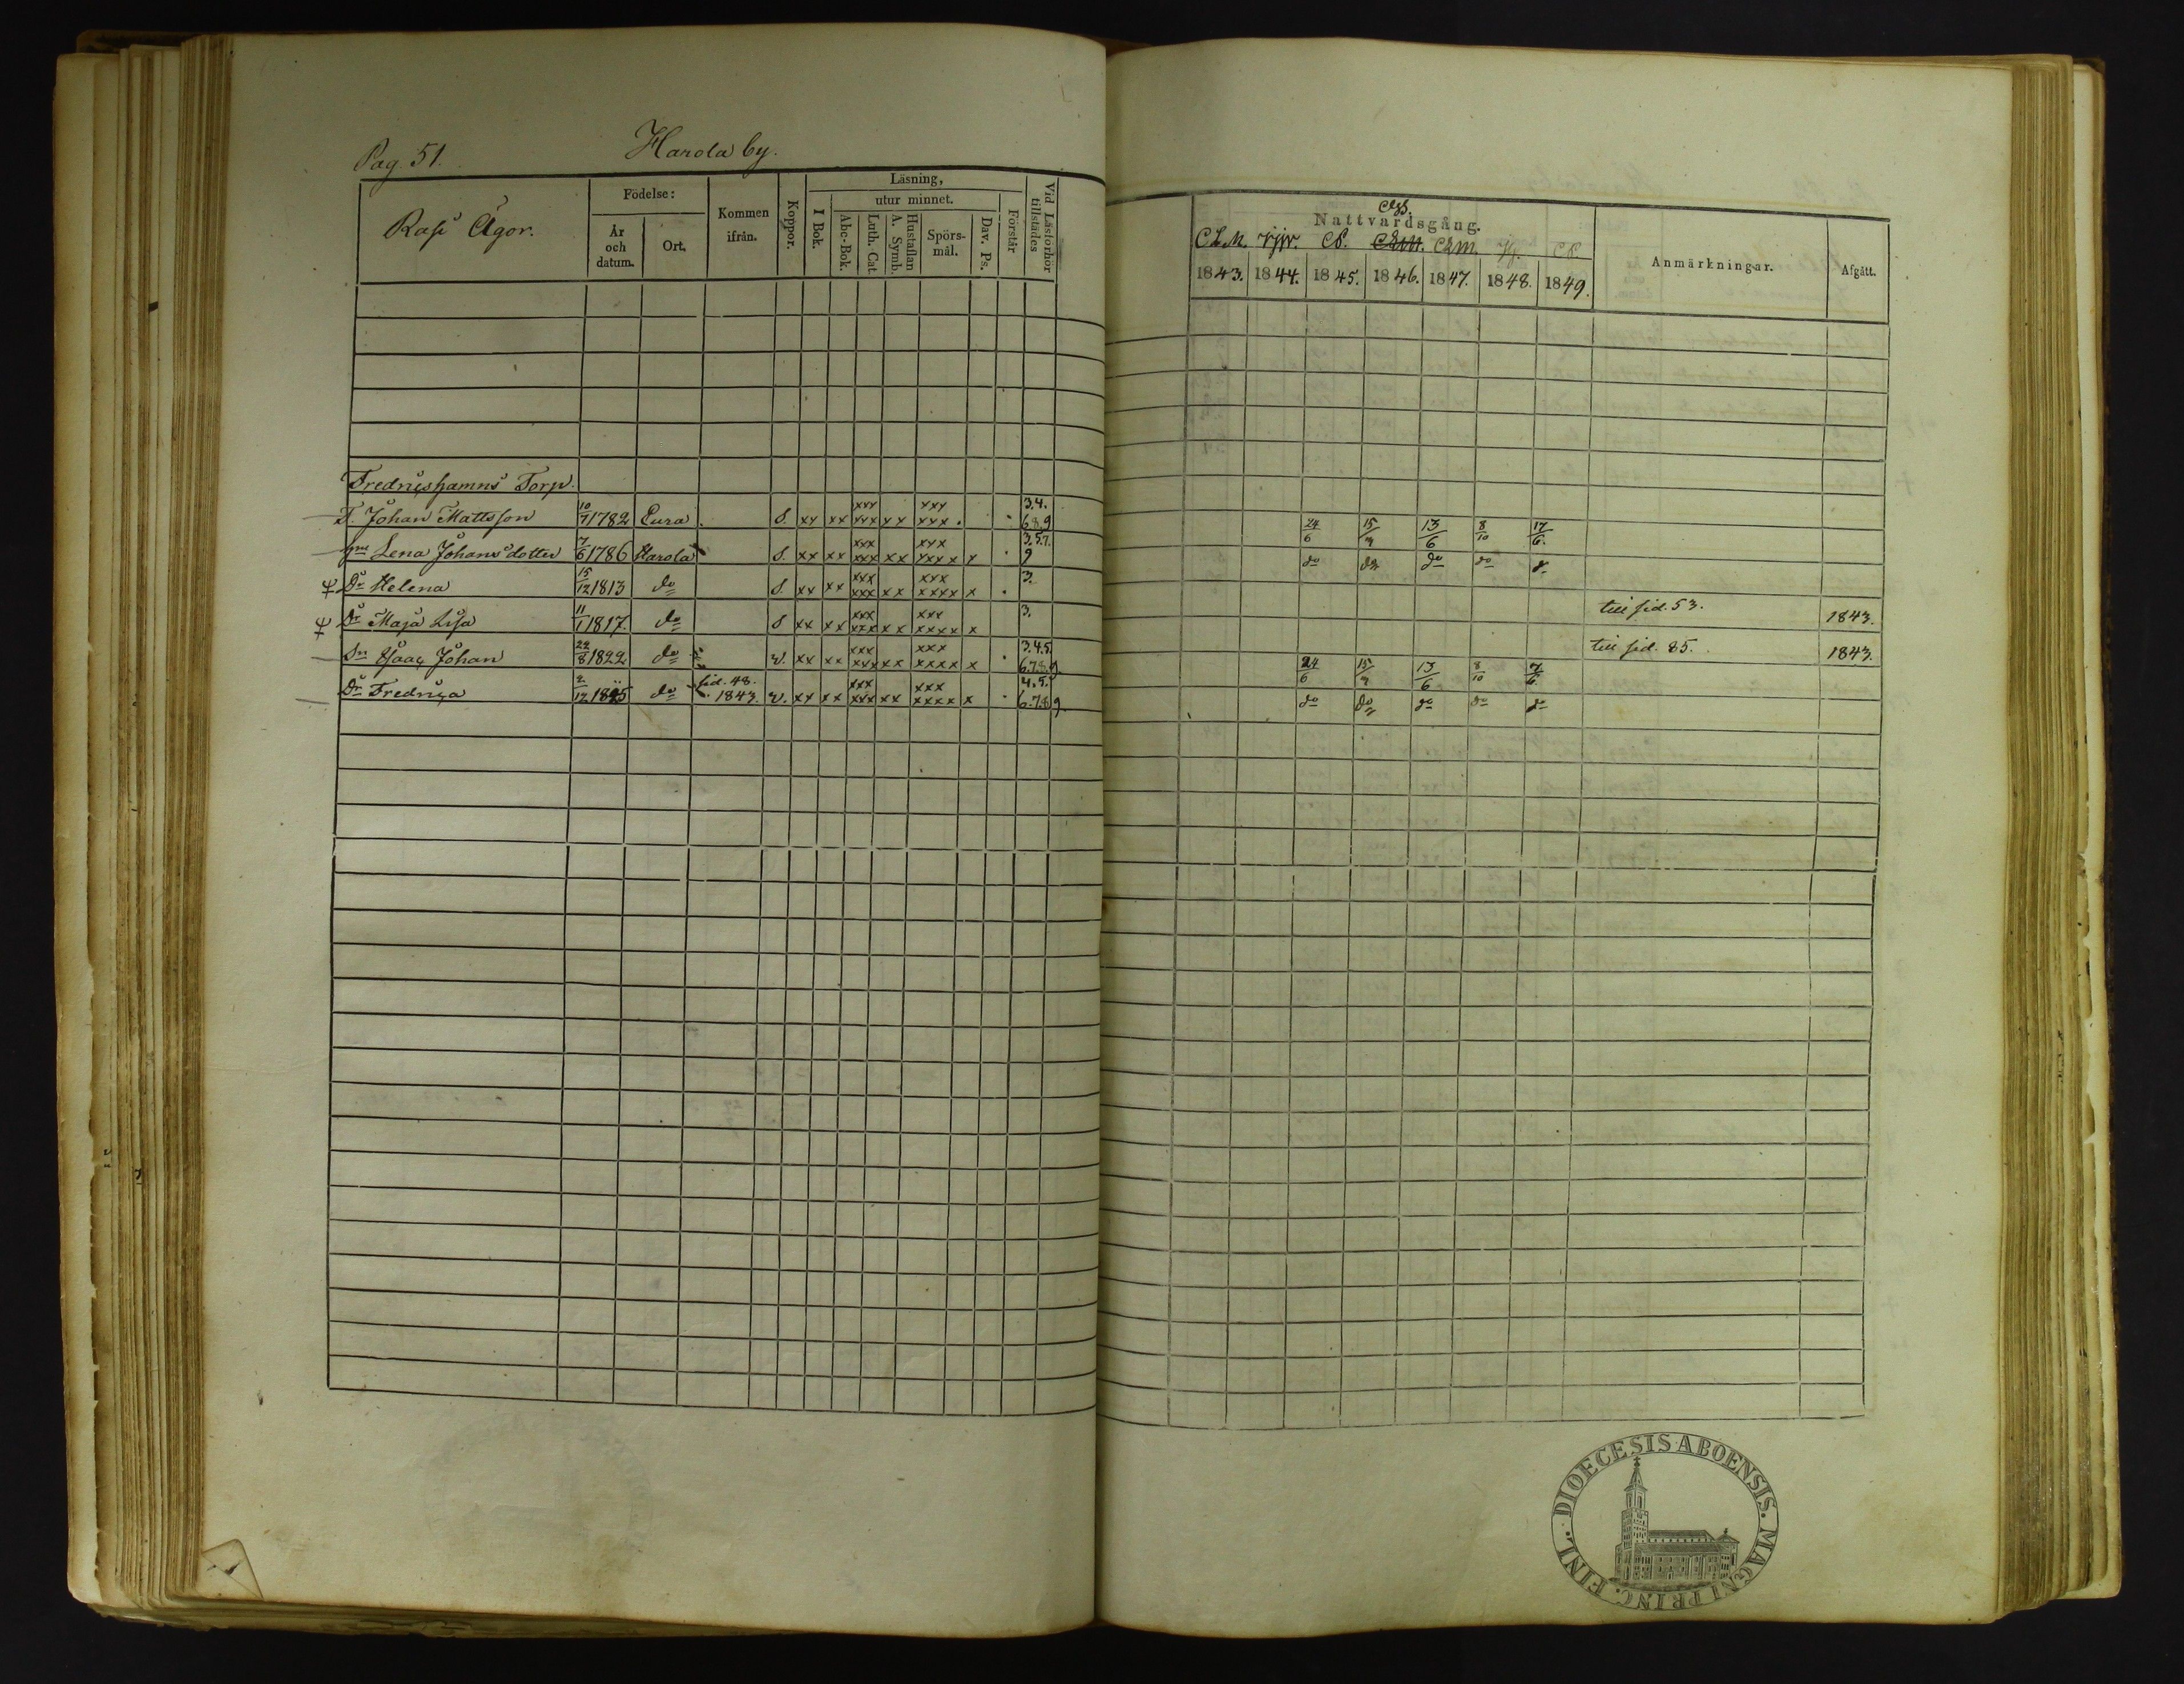 Pag. 51. Harola by.
Rasi Ägor.
Födelse:
År och datum.
Ort.
Kommen ifrån.
Koppor.
Läsning,
I Bok.
utur minnet.
Abc-Bok.
Luth. Cat.
Hustaflan A. Symb.
Spörsmål.
Dav. Ps.
Förstår
Vid Läsförhör tillstädes
Nattvardsgång.
1843. 1844. 1845. 1846. 1847. 1848. 1849.
Anmärkningar.
Afgått.
Fredricshamns Torp.
T. Johan Mattsson 10/7 1782 Eura. S. xx xx xxx xxx xx xxx xxx. 3.4. 6.8.9 24/6 15/ 13/6 8/10 17/6.
Lena Johansdotter 7/6 1786 Harola S. xx xx xxx xxx xx xxx xxxx x 3.5.7. 9 do do do do
Dr Helena 15/12 1813 do S. xx xx xxx xxx xx xxx xxxx x 3. till sid. 53. 1843.
Dr Maja Lisa 11/1 1817 do S xx xx xxx xxx xx xxx xxxx x 3. till sid. 85. 1843.
Sn Isaac Johan 22/8 1822 do v. xx xx xxx xxx xx xxx xxxx x 3.4.5. 6.7.8.9 24/6 15/ 13/6 8/10 /6.
Dr Fredrica 2/12 1825 do sid. 48. 1843. v. xx xx xxx xxx xx xxx xxxx x 4.5. 6.7.8.9 do do do do
DIOECESIS ABOENSIS. MAGNI PRINC. FINL.